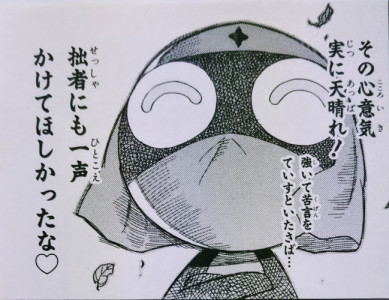 その心意気
実に天晴れ！
強いて苦言を
ていすといたさば…
拙者にも一声
かけてほしかったな♡